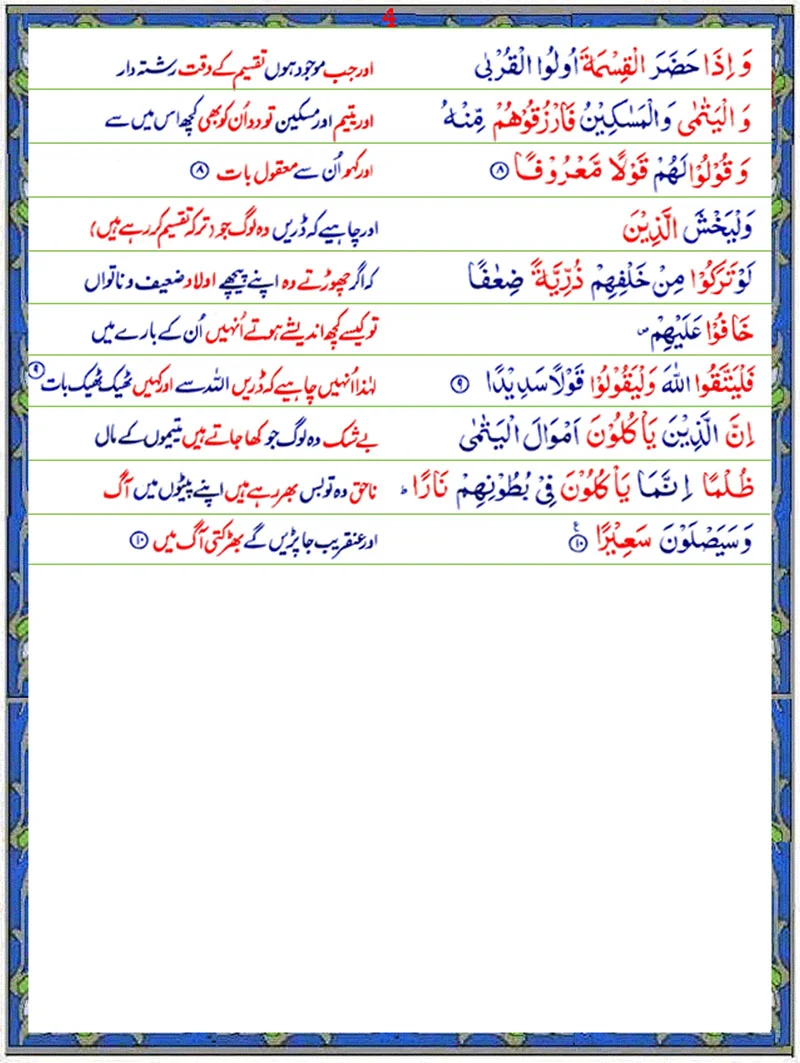 4
وَ اِذَا حَضَرَ الْقِسْمَةَ اُولُوا الْقُرْبٰى اور جب موجود ہوں تقسیم کے وقت رشتہ دار
وَ الْيَتٰمٰى وَالْمَسٰكِيْنُ فَارْزُقُوْهُمْ مِّنْهُ اور یتیم اور مسکین تو دو اُن کو بھی کچھ اس میں سے
وَ قُوْلُوْا لَهُمْ قَوْلًا مَّعْرُوْفًا ۸ اور کہو اُن سے معقول بات ۸
وَلْيَخْشَ الَّذِيْنَ اور چاہیے کہ ڈریں وہ لوگ جو (ترکہ تقسیم کر رہے ہیں)
لَوْ تَرَكُوْا مِنْ خَلْفِهِمْ ذُرِّيَّةً ضِعٰفًا کہ اگر چھوڑتے وہ اپنے پیچھے اولاد ضعیف و ناتواں
خَافُوْا عَلَيْهِمْ ص تو کیسے کچھ اندیشے ہوتے اُنہیں اُن کے بارے میں
فَلْيَتَّقُوا اللّٰهَ وَلْيَقُوْلُوْا قَوْلًا سَدِيْدًا ۹ لہٰذا اُنہیں چاہیے کہ ڈریں اللہ سے اور کہیں ٹھیک ٹھیک بات ۹
اِنَّ الَّذِيْنَ يَاْكُلُوْنَ اَمْوَالَ الْيَتٰمٰى بے شک وہ لوگ جو کھا جاتے ہیں یتیموں کے مال
ظُلْمًا اِنَّمَا يَاْكُلُوْنَ فِيْ بُطُوْنِهِمْ نَارًا ط ناحق وہ تو بس بھر رہے ہیں اپنے پیٹوں میں آگ
وَسَيَصْلَوْنَ سَعِيْرًا ۱۰ ع اور عنقریب جا پڑیں گے بھڑکتی آگ میں ۱۰